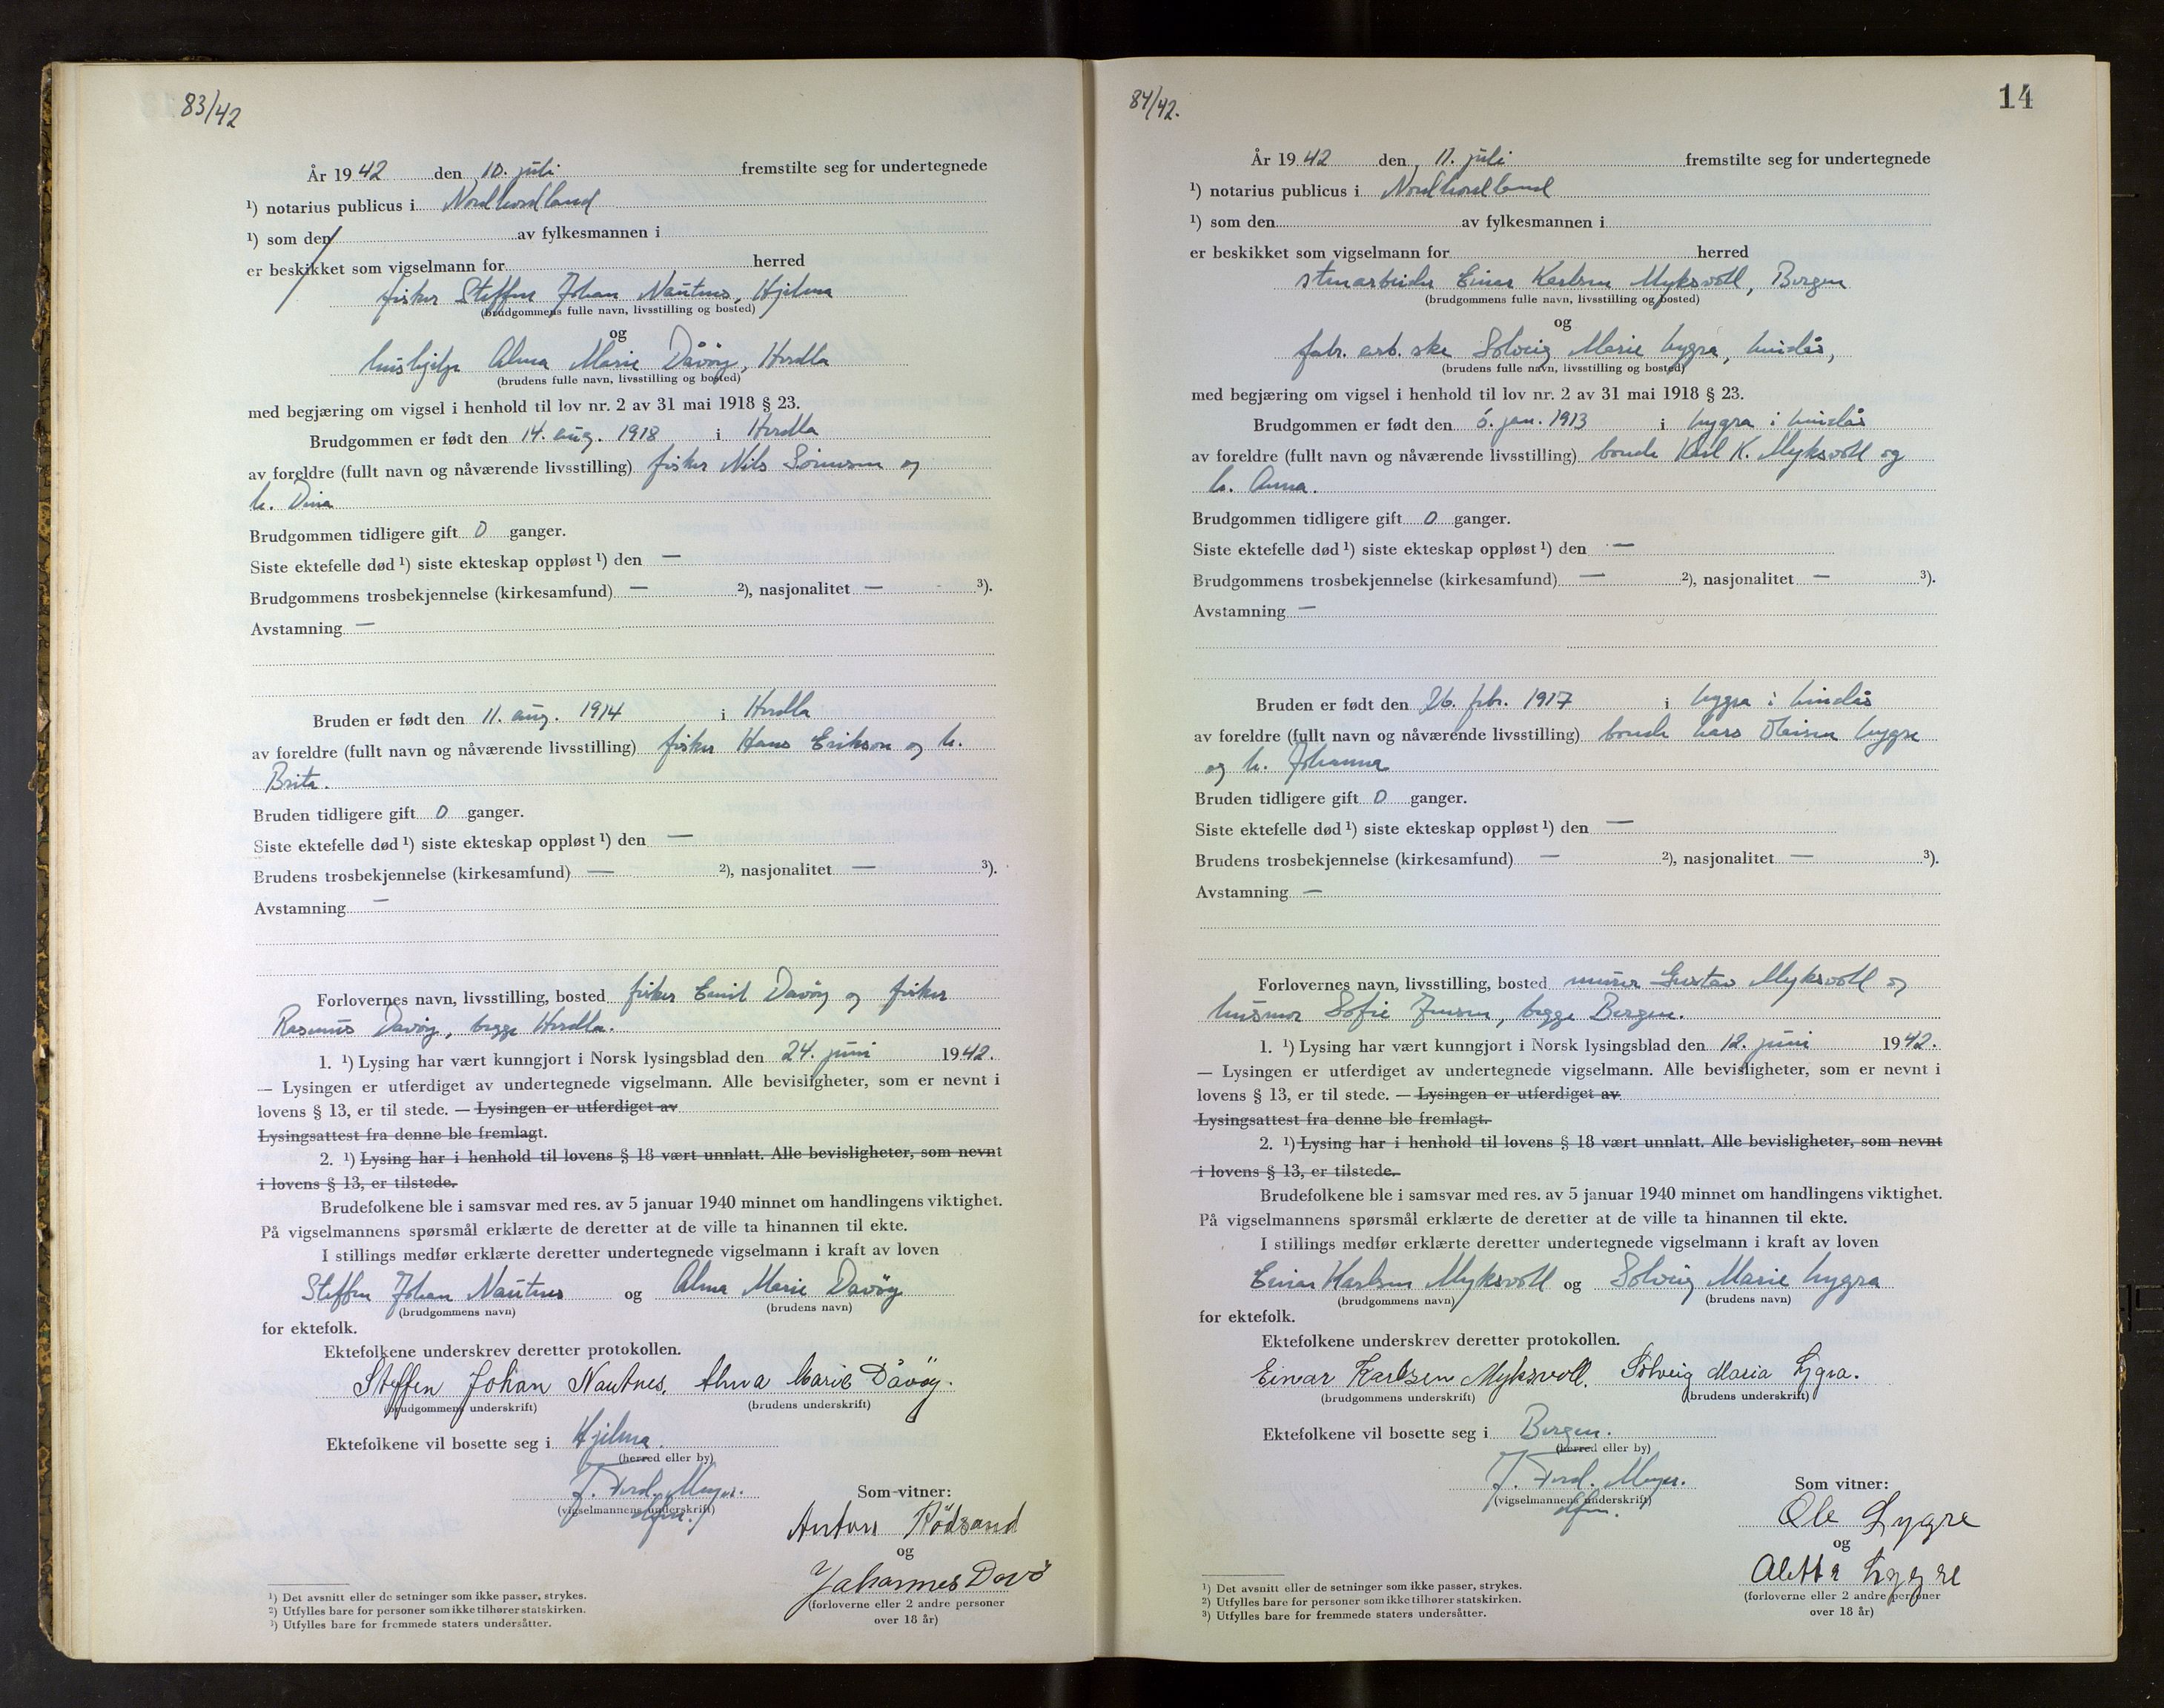 83/42
År 1942 den 10. juli fremstilte seg for undertegnede
¹) notarius publicus i Nordhordland
¹) som den av fylkesmannen i
er beskikket som vigselmann for herred
fisker Steffen Johan Nautnes, Hjelma
(brudgommens fulle navn, livsstilling og bosted)
og
hushjelp Alma Marie Dåvøy, Herdla
(brudens fulle navn, livsstilling og bosted)
med begjæring om vigsel i henhold til lov nr. 2 av 31 mai 1918 § 23.
Brudgommen er født den 14. aug. 1918 i Herdla
av foreldre (fullt navn og nåværende livsstilling) fisker Nils og
h. Dina
Brudgommen tidligere gift 0 ganger.
Siste ektefelle død ¹) siste ekteskap oppløst ¹) den —
Brudgommens trosbekjennelse (kirkesamfund) — ²), nasjonalitet — ³).
Avstamning —
Bruden er født den 11. aug. 1914 i Herdla
av foreldre (fullt navn og nåværende livsstilling) fisker Hans Erikson og h.
Brita.
Bruden tidligere gift 0 ganger.
Siste ektefelle død ¹) siste ekteskap oppløst ¹) den —
Brudens trosbekjennelse (kirkesamfund) — ²), nasjonalitet — ³).
Avstamning —
Forlovernes navn, livsstilling, bosted fisker Emil Davøy og fisker
Rasmus Davøy, begge Herdla.
1. ¹) Lysing har vært kunngjort i Norsk lysingsblad den 24. juni 1942.
— Lysingen er utferdiget av undertegnede vigselmann. Alle bevisligheter, som er nevnt i
lovens § 13, er til stede. — Lysingen er utferdiget av
Lysingsattest fra denne ble fremlagt.
2. ¹) Lysing har i henhold til lovens § 18 vært unnlatt. Alle bevisligheter, som nevnt
i lovens § 13, er tilstede.
Brudefolkene ble i samsvar med res. av 5 januar 1940 minnet om handlingens viktighet.
På vigselmannens spørsmål erklærte de deretter at de ville ta hinannen til ekte.
I stillings medfør erklærte deretter undertegnede vigselmann i kraft av loven
Steffen Johan Nautnes og Alma Marie Davøy
(brudgommens navn) (brudens navn)
for ektefolk.
Ektefolkene underskrev deretter protokollen.
Steffen Johan Nautnes, Alma Marie Dåvøy.
(brudgommens underskrift) (brudens underskrift)
Ektefolkene vil bosette seg i Hjelma.
(herred eller by)
J. Ferd. Meyer.
(vigselmannens underskrift)
dfm.
Som vitner:
Anton Rødsand
og
Johannes Davø
(forloverne eller 2 andre personer
over 18 år)
¹) Det avsnitt eller de setninger som ikke passer, strykes.
²) Utfylles bare for personer som ikke tilhører statskirken.
³) Utfylles bare for fremmede staters undersåtter.
84/42.
14
År 1942 den 11. juli fremstilte seg for undertegnede
¹) notarius publicus i Nordhordland
¹) som den av fylkesmannen i
er beskikket som vigselmann for herred
stenarbeider Einar Karlsen Myksvoll, Bergen
(brudgommens fulle navn, livsstilling og bosted)
og
fabr. arb. ske Solveig Marie Lygra, Lindås,
(brudens fulle navn, livsstilling og bosted)
med begjæring om vigsel i henhold til lov nr. 2 av 31 mai 1918 § 23.
Brudgommen er født den 5. jan. 1913 i Lygra i Lindås
av foreldre (fullt navn og nåværende livsstilling) bonde Karl K. Myksvoll og
h. Anna.
Brudgommen tidligere gift 0 ganger.
Siste ektefelle død ¹) siste ekteskap oppløst ¹) den —
Brudgommens trosbekjennelse (kirkesamfund) — ²), nasjonalitet — ³).
Avstamning —
Bruden er født den 26. febr. 1917 i Lygra i Lindås
av foreldre (fullt navn og nåværende livsstilling) bonde Lars Lygre
og h. Johanna
Bruden tidligere gift 0 ganger.
Siste ektefelle død ¹) siste ekteskap oppløst ¹) den —
Brudens trosbekjennelse (kirkesamfund) — ²), nasjonalitet — ³).
Avstamning —
Forlovernes navn, livsstilling, bosted murer Gustav Myksvoll og
husmor Sofie Jensen, begge Bergen.
1. ¹) Lysing har vært kunngjort i Norsk lysingsblad den 12. juni 1942.
— Lysingen er utferdiget av undertegnede vigselmann. Alle bevisligheter, som er nevnt i
lovens § 13, er til stede. — Lysingen er utferdiget av
Lysingsattest fra denne ble fremlagt.
2. ¹) Lysing har i henhold til lovens § 18 vært unnlatt. Alle bevisligheter, som nevnt
i lovens § 13, er tilstede.
Brudefolkene ble i samsvar med res. av 5 januar 1940 minnet om handlingens viktighet.
På vigselmannens spørsmål erklærte de deretter at de ville ta hinannen til ekte.
I stillings medfør erklærte deretter undertegnede vigselmann i kraft av loven
Einar Karlsen Myksvoll og Solveig Marie Lygra
(brudgommens navn) (brudens navn)
for ektefolk.
Ektefolkene underskrev deretter protokollen.
Einar Karlsen Myksvoll. Solveig Maria Lygra.
(brudgommens underskrift) (brudens underskrift)
Ektefolkene vil bosette seg i Bergen.
(herred eller by)
J. Ferd. Meyer.
(vigselmannens underskrift)
dfm.
Som vitner:
Ole Lygre
og
Aletta Lygre
(forloverne eller 2 andre personer
over 18 år)
¹) Det avsnitt eller de setninger som ikke passer, strykes.
²) Utfylles bare for personer som ikke tilhører statskirken.
³) Utfylles bare for fremmede staters undersåtter.